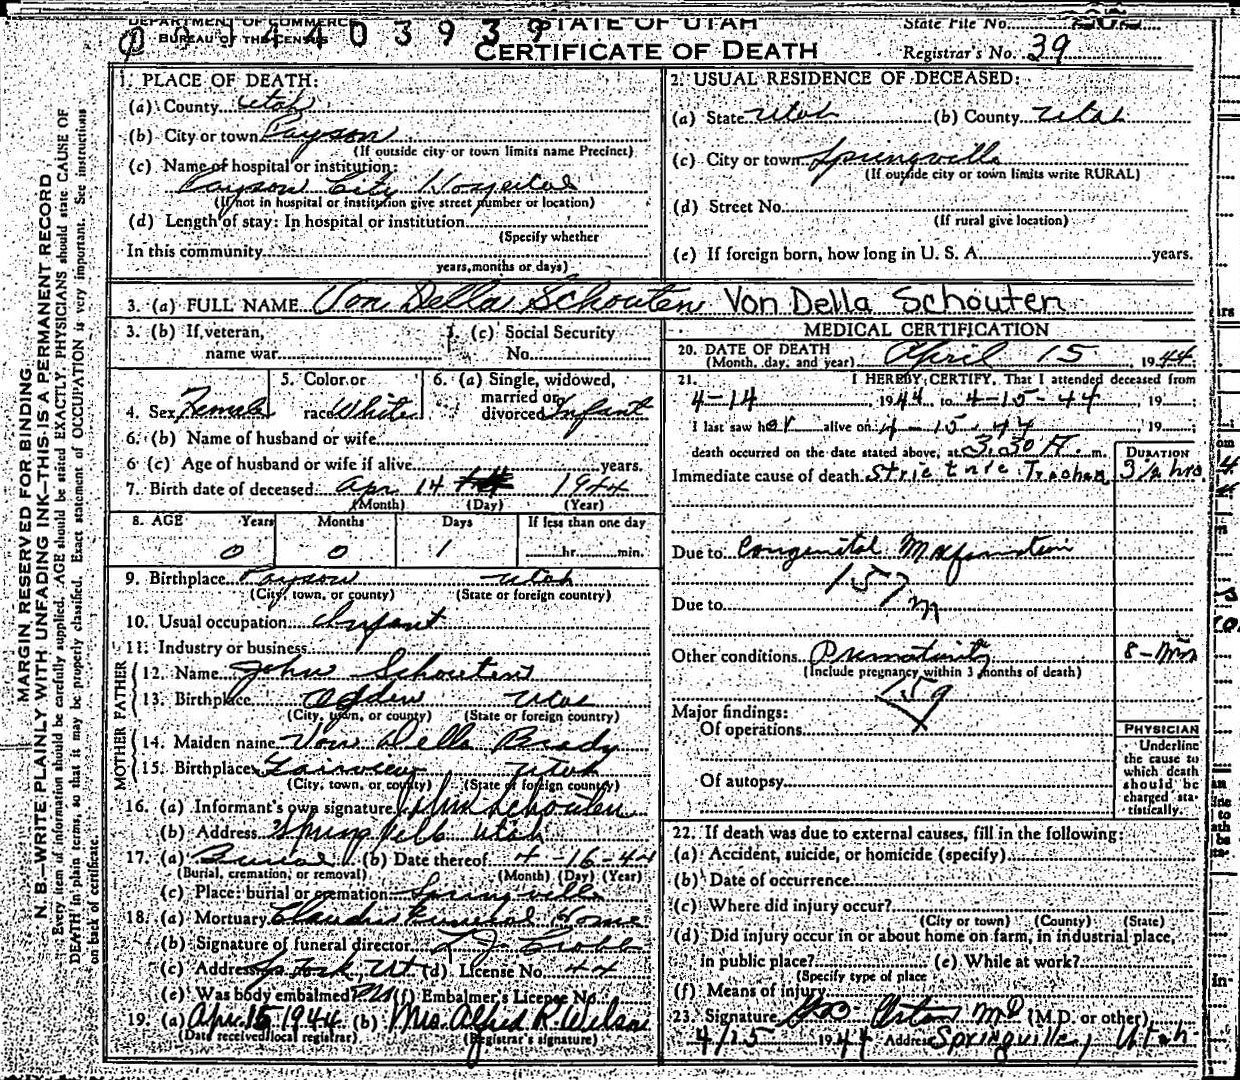 DEPARTMENT OF COMMERCE
BUREAU OF THE CENSUS
4 4 0 3 9 3 9
STATE OF UTAH
CERTIFICATE OF DEATH
State File No.
Registrar's No. 39
MARGIN RESERVED FOR BINDING.
N. B.—WRITE PLAINLY WITH UNFADING INK—THIS IS A PERMANENT RECORD
Every item of information should be carefully supplied. AGE should be stated EXACTLY. PHYSICIANS should state CAUSE OF
DEATH in plain terms, so that it may be properly classified. Exact statement of OCCUPATION is very important. See instructions
on back of certificate.
1. PLACE OF DEATH:
(a) County Utah
(b) City or town Payson
(If outside city or town limits name Precinct)
(c) Name of hospital or institution:
Payson City Hospital
(If not in hospital or institution give street number or location)
(d) Length of stay: In hospital or institution
(Specify whether
In this community
years, months or days)
2. USUAL RESIDENCE OF DECEASED:
(a) State Utah (b) County Utah
(c) City or town Springville
(If outside city or town limits write RURAL)
(d) Street No.
(If rural give location)
(e) If foreign born, how long in U. S. A. years.
3. (a) FULL NAME Von Della Schouten Von Della Schouten
3. (b) If veteran,
name war
3. (c) Social Security
No.
4. Sex Female
5. Color or
race White
6. (a) Single, widowed,
married or
divorced Infant
6. (b) Name of husband or wife
6 (c) Age of husband or wife if alive years.
7. Birth date of deceased Apr 14 1944
(Month) (Day) (Year)
8. AGE Years Months Days If less than one day
0 0 1 hr. min.
9. Birthplace Payson Utah
(City, town, or county) (State or foreign country)
10. Usual occupation Infant
11. Industry or business
FATHER
12. Name John Schouten
13. Birthplace Ogden Utah
(City, town, or county) (State or foreign country)
MOTHER
14. Maiden name Von Della Brady
15. Birthplace Fairview Utah
(City, town, or county) (State or foreign country)
16. (a) Informant's own signature John Schouten
(b) Address Springville Utah
17. (a) Burial (b) Date thereof 4-16-44
(Burial, cremation, or removal) (Month) (Day) (Year)
(c) Place: burial or cremation Springville
18. (a) Mortuary Claudin Funeral Home
(b) Signature of funeral director
(c) Address Sp. Fork, Ut. (d) License No. 44
(e) Was body embalmed? (f) Embalmer's License No.
19. (a) Apr. 15 1944 (b) Mrs. Alfred R. Wilson
(Date received local registrar) (Registrar's signature)
MEDICAL CERTIFICATION
20. DATE OF DEATH
(Month, day, and year) April 15, 1944
21. I HEREBY CERTIFY, That I attended deceased from
4-14, 1944, to 4-15-44, 19 ;
I last saw her alive on 4-15-44, 19 ;
death occurred on the date stated above, at 3:30 A. m.
DURATION
Immediate cause of death Stricture Trachea 3 1/2 hrs
Due to Congenital Malformation
157 m
Due to
Other conditions Prematurity 8-Mo
(Include pregnancy within 3 months of death)
159
Major findings:
Of operations
Of autopsy
PHYSICIAN
Underline
the cause to
which death
should be
charged sta-
tistically.
22. If death was due to external causes, fill in the following:
(a) Accident, suicide, or homicide (specify)
(b) Date of occurrence
(c) Where did injury occur?
(City or town) (County) (State)
(d) Did injury occur in or about home on farm, in industrial place,
in public place? (e) While at work?
(Specify type of place
(f) Means of injury
23. Signature Geo. Orton MD (M.D. or other)
4/15 1944 Address Springville, Utah